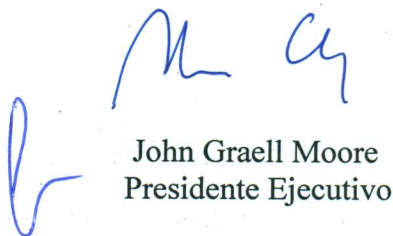 John Graell Moore
Presidente Ejecutivo